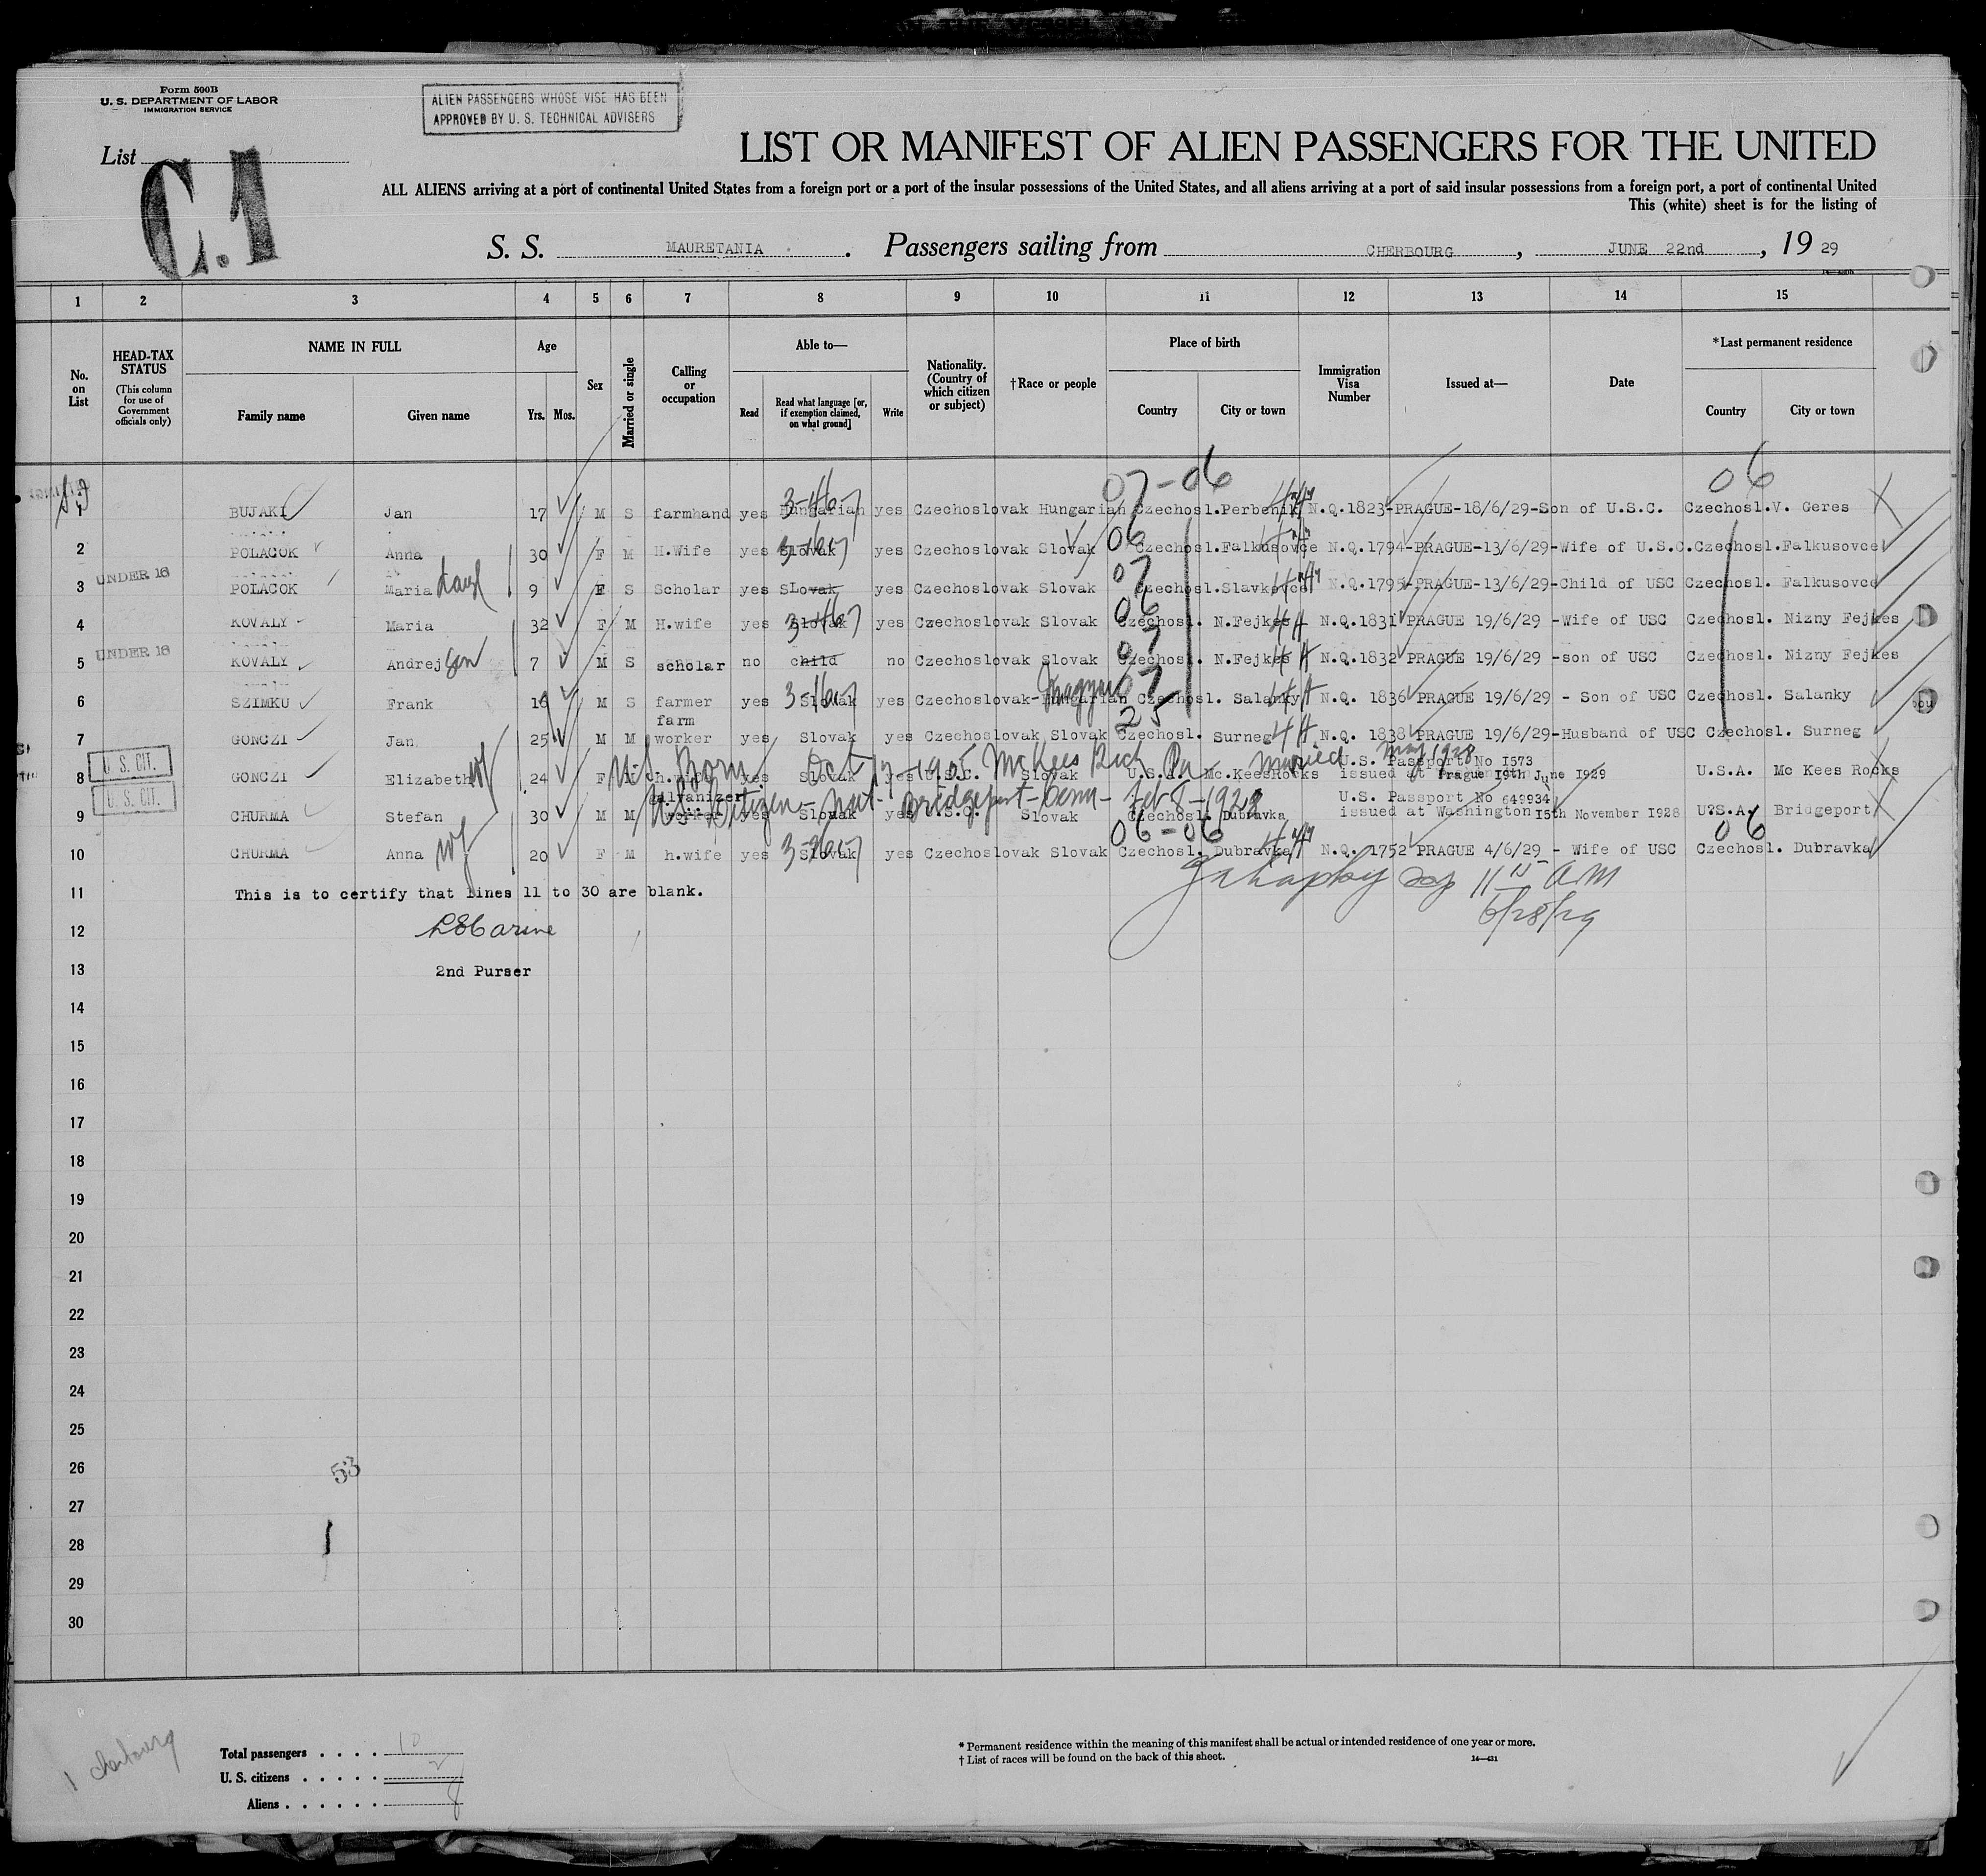 Form 500B
U. S. DEPARTMENT OF LABOR
IMMIGRATION SERVICE
ALIEN PASSENGERS WHOSE VISE HAS BEEN
APPROVED BY U. S. TECHNICAL ADVISERS
List
C.1
LIST OR MANIFEST OF ALIEN PASSENGERS FOR THE UNITED
ALL ALIENS arriving at a port of continental United States from a foreign port or a port of the insular possessions of the United States, and all aliens arriving at a port of said insular possessions from a foreign port, a port of continental United
This (white) sheet is for the listing of
S. S. MAURETANIA . Passengers sailing from CHERBOURG , JUNE 22nd , 19 29
1 2 3 4 5 6 7 8 9 10 11 12 13 14 15
No. on List
HEAD-TAX STATUS (This column for use of Government officials only)
NAME IN FULL Family name Given name
Age Yrs. Mos.
Sex
Married or single
Calling or occupation
Able to— Read Read what language [or, if exemption claimed, on what ground] Write
Nationality. (Country of which citizen or subject)
†Race or people
Place of birth Country City or town
Immigration Visa Number
Issued at—
Date
*Last permanent residence Country City or town
07-06 06
1 BUJAKI Jan 17 M S farmhand yes Hungarian yes Czechoslovak Hungarian Czechosl. Perbenik N.Q.1823-PRAGUE-18/6/29-Son of U.S.C. Czechosl. V. Geres
2 POLACOK Anna 30 F M H.Wife yes Slovak yes Czechoslovak Slovak 06 Czechosl. Falkusovce N.Q.1794-PRAGUE-13/6/29-Wife of U.S.C. Czechosl. Falkusovce
3 UNDER 16 POLACOK Maria 9 F S Scholar yes SLovak yes Czechoslovak Slovak 07 Czechosl. Slavkovce N.Q.1795-PRAGUE-13/6/29-Child of USC Czechosl. Falkusovce
4 KOVALY Maria 32 F M H.wife yes Slovak yes Czechoslovak Slovak 06 Czechosl. N.Fejkes N.Q.1831 PRAGUE 19/6/29 -Wife of USC Czechosl. Nizny Fejkes
5 UNDER 16 KOVALY Andrej son 7 M S scholar no child no Czechoslovak Slovak 07 Czechosl. N.Fejkes N.Q.1832 PRAGUE 19/6/29 -son of USC Czechosl. Nizny Fejkes
6 SZIMKU Frank 16 M S farmer yes Slovak yes Czechoslovak-Hungarian Magyar 07 Czechosl. Salanky N.Q. 1836 PRAGUE 19/6/29 - Son of USC Czechosl. Salanky
7 GONCZI Jan 25 M M farm worker yes Slovak yes Czechoslovak Slovak 25 Czechosl. Surneg N.Q. 1838 PRAGUE 19/6/29-Husband of USC Czechosl. Surneg
US Born Oct 17-1905 McKees Rich Pa married May 1928
8 U S. CIT. GONCZI Elizabeth wf 24 F M h.wife yes Slovak yes U.S.C. Slovak U.S.A. Mc.KeesRocks U.S. Passport No I573 issued at Prague 19th June I929 U.S.A. Mc Kees Rocks
US Citizen - Nat - Bridgeport - Conn - Feb 8 - 1928
9 U. S. CIT. CHURMA Stefan 30 M M galvanizer worker yes Slovak yes U.S.C. Slovak Czechosl. Dubravka U.S. Passport No 649934 issued at Washington I5th November I928 U.S.A. Bridgeport
06-06 06
10 CHURMA Anna wf 20 F M h.wife yes Slovak yes Czechoslovak Slovak Czechosl. Dubravka N.Q. 1752 PRAGUE 4/6/29 - Wife of USC Czechosl. Dubravka
11 This is to certify that lines 11 to 30 are blank.
AM
6/28/29
12
13 2nd Purser
14
15
16
17
18
19
20
21
22
23
24
25
26
53
27
28
29
30
1 cherbourg
Total passengers . . . . 10
U. S. citizens . . . . . 2
Aliens . . . . . . 8
* Permanent residence within the meaning of this manifest shall be actual or intended residence of one year or more.
† List of races will be found on the back of this sheet.
14—431